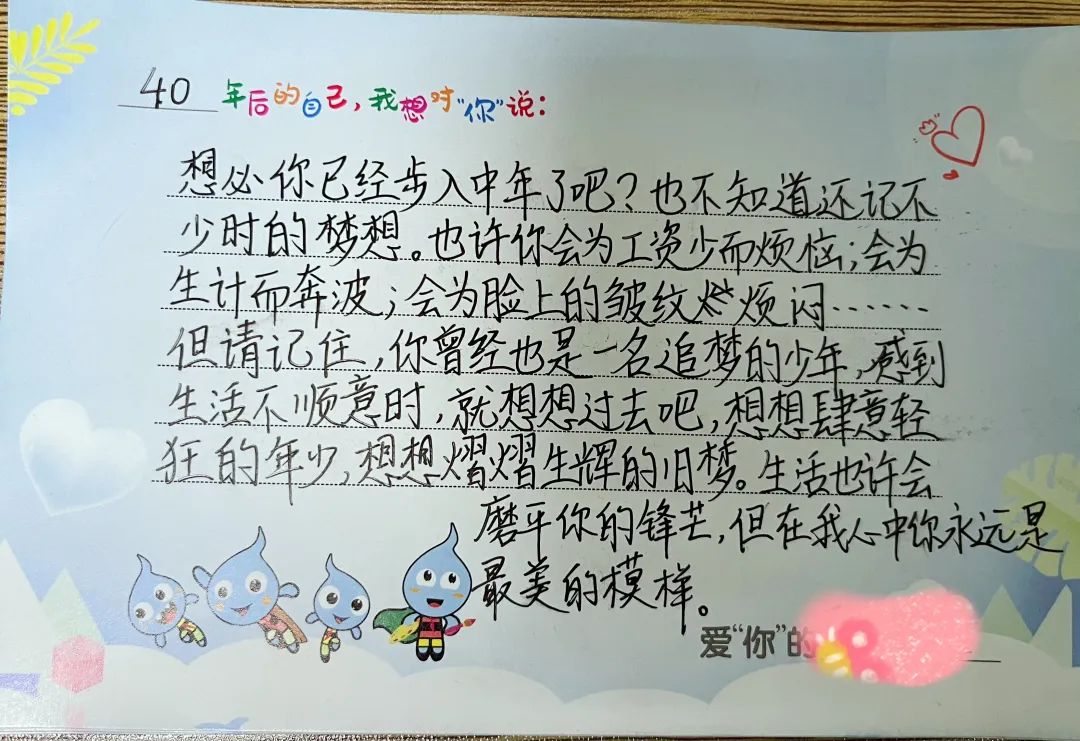 40 年后的自己，我想对“你”说：
想必你已经步入中年了吧？也不知道还记不
少时的梦想。也许你会为工资少而烦恼；会为
生计而奔波；会为脸上的皱纹烦闷……
但请记住，你曾经也是一名追梦的少年，感到
生活不顺意时，就想想过去吧，想想肆意轻
狂的年少，想想熠熠生辉的旧梦。生活也许会
磨平你的锋芒，但在我心中你永远是
最美的模样。
爱“你”的